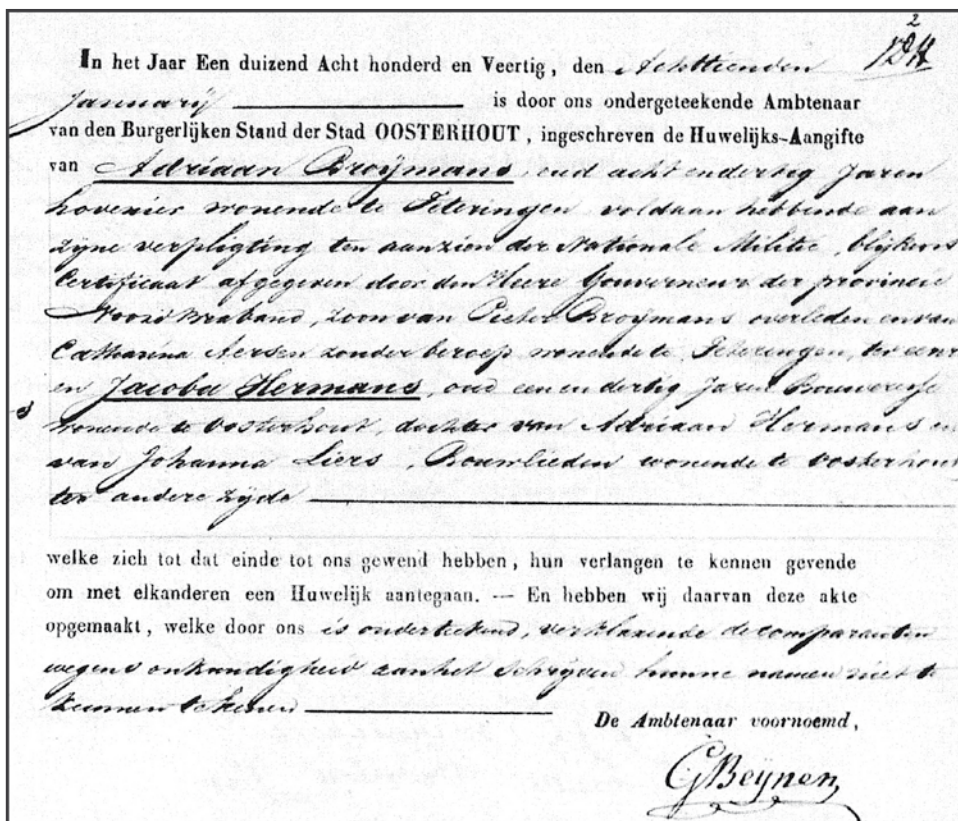 2
In het Jaar Een duizend Acht honderd en Veertig, den Achttienden
Januarij is door ons ondergeteekende Ambtenaar
van den Burgerlijken Stand der Stad OOSTERHOUT, ingeschreven de Huwelijks-Aangifte
van Adriaan Broijmans, oud acht en dertig Jaren
hovenier wonende te Teteringen, voldaan hebbende aan
zijne verpligting ten aanzien der Nationale Militie, blijkens
Certificaat afgegeven door den Heere Gouverneur der provincie
Noord Braband, zoon van Pieter Broijmans overleden en van
Catharina Aersen zonder beroep wonende te Teteringen, ter eenre
en Jacoba Hermans, oud een en dertig Jaren Bouweresse
wonende te Oosterhout, dochter van Adriaan Hermans en
van Johanna Liers, Bouwlieden wonende te Oosterhout
ter andere zijde
welke zich tot dat einde tot ons gewend hebben, hun verlangen te kennen gevende
om met elkanderen een Huwelijk aantegaan. — En hebben wij daarvan deze akte
opgemaakt, welke door ons is onderteekend, verklarende de comparanten
wegens onkundigheid aan het schrijven hunne namen niet te
kunnen tekenen
De Ambtenaar voornoemd,
GBeijnen